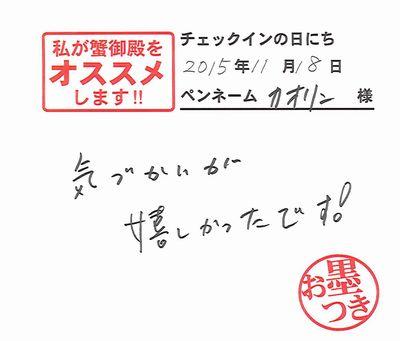 私が蟹御殿を
オススメ
します!!
チェックインの日にち
2015年11月18日
ペンネーム カオリン 様
気づかいが
嬉しかったです!
お墨つき